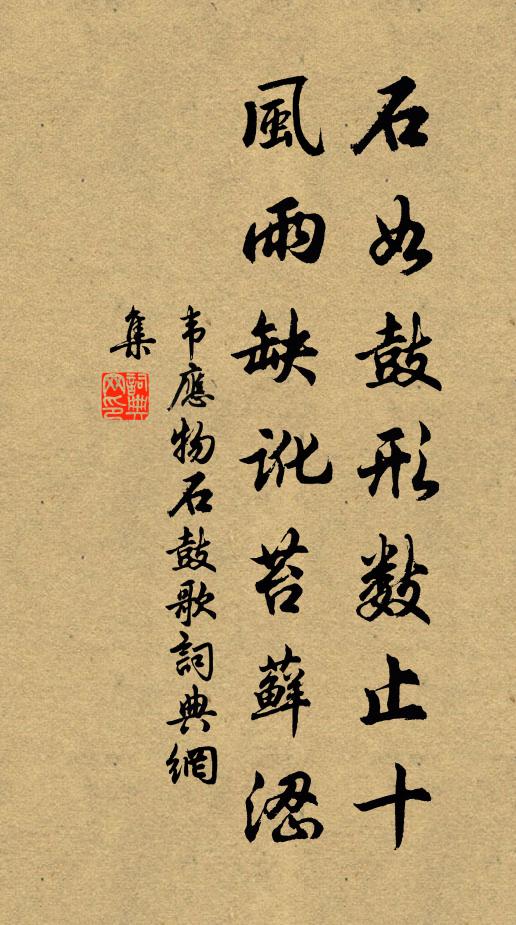 石如鼓形数止十
風雨缺訛苔蘚涩
韦應物石鼓歌詞典網
集
詞典网印